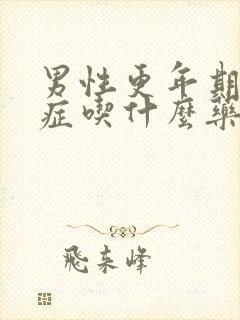 男性更年期
症喫什麼藥
飛來峰